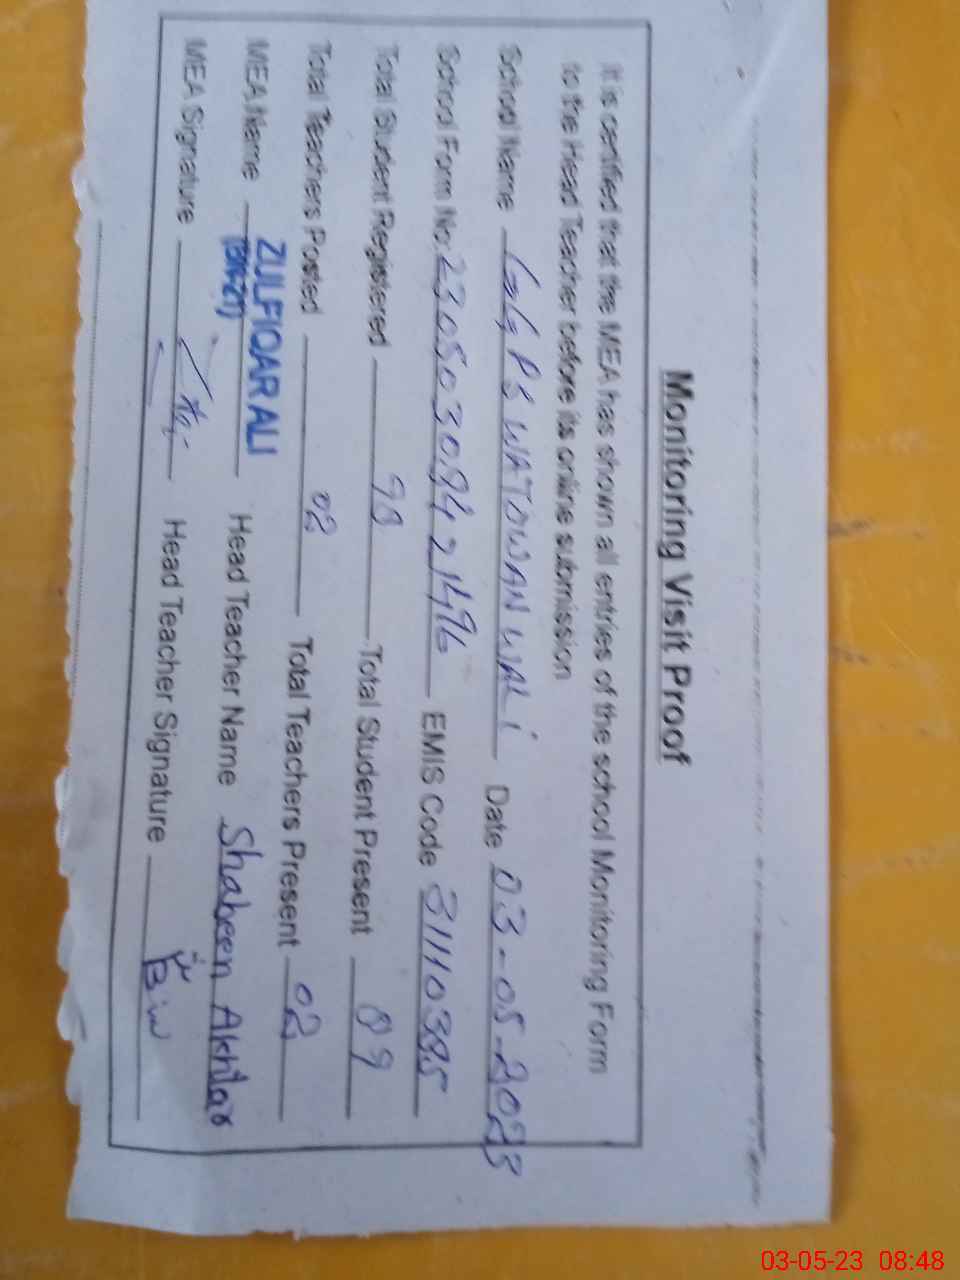 Monitoring Visit Proof
It is certified that the MEA has shown all entries of the school Monitoring Form
to the Head Teacher before its online submission
School Name GGPS WATOWAN WALI Date 03-05-2023
School Form No. 23050309421496 EMIS Code 31110385
Total Student Registered 98 Total Student Present 89
Total Teachers Posted 02 Total Teachers Present 02
MEA Name ZULFIQAR ALI Head Teacher Name Shaheen Akhtar
MEA Signature Head Teacher Signature
03-05-23 08:48